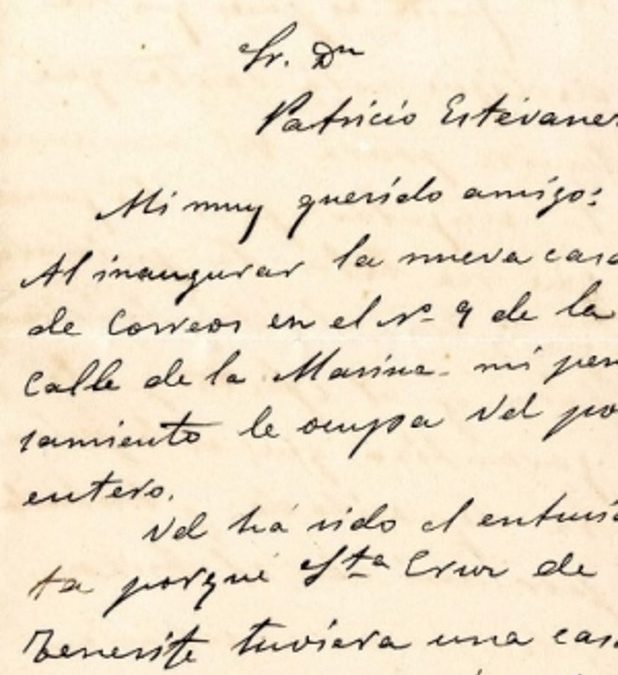 Sr. Dn
Patricio Estévanez
Mi muy querido amigo:
Al inaugurar la nueva casa
de Correos en el nº 9 de la
Calle de la Marina - mi pen
samiento le ocupa Vd por
entero.
Vd há sido el entusias
ta porqué Sta Cruz de
Tenerife tuviera una casa